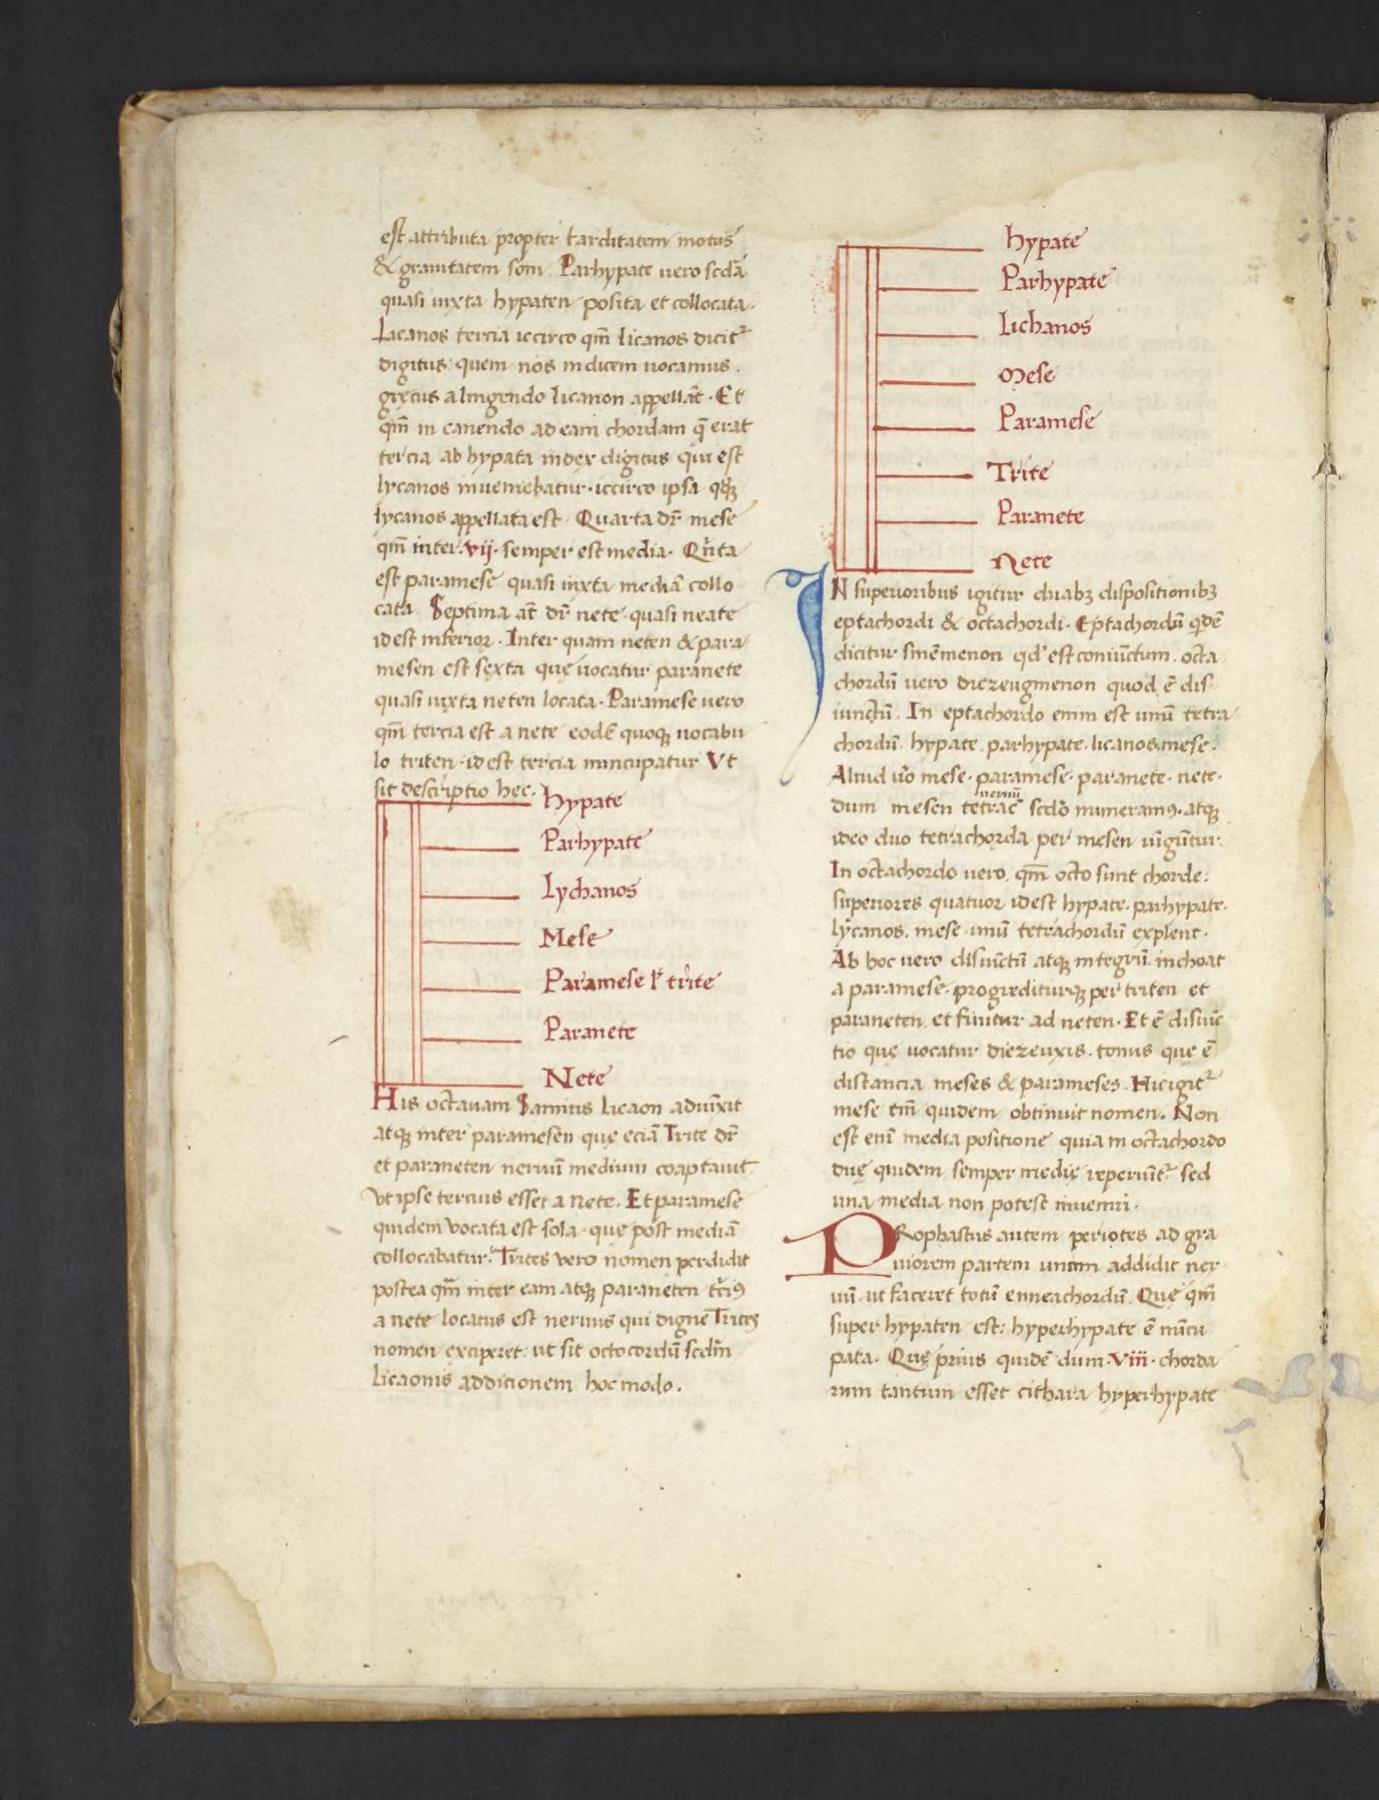 est attributa propter tarditatem motus
& grauitatem som̄. Parhypate uero scdā
quasi iuxta hypaten posita et collocata.
Licanos tercia iccirco qm̄ licanos dicit᷑
digitus quem nos indicem uocamus.
gręcus a lingendo licanon appellat̄. Et
qm̄ in canendo ad eam chordam q̄ erat
tercia ab hypata index digitus qui est
lycanos inueniebatur. iccirco ipsa qq̨
lycanos appellata est. Quarta dr̄ mese
qm̄ inter .vij. semper est media. Qīnta
est paramese quasi iuxta mediā collo
cata. Septima at̄ dr̄ nete quasi neate
id est inferior. Inter quam neten & para
mesen est sexta quę uocatur paranete
quasi iuxta neten locata. Paramese uero
qm̄ tercia est a nete eodē quoq̨ uocabu
lo triten. id est tercia nuncupatur Vt
sit descriptio hec.
Hypate
Parhypate
Lychanos
Mese
Paramese ł trite
Paranete
Nete
His octauam Samius licaon aduīxit
atq̨ inter paramesen que eciā Trite dr̄
et paraneten neruū medium coaptauit
vt ipse tercius esset a nete. Et paramese
quidem vocata est sola. que post mediā
collocabatur. Trites vero nomen perdidit
postea qm̄ inter eam atq̨ paraneten t̄ciꝰ
a nete locatus est neruus qui digne Trites
nomen exciperet. ut sit octocordū scdm̄
licaonis additionem hoc modo.
Hypate
Parhypate
Lichanos
Mese
Paramese
Trite
Paranete
Nete
IN superioribus igitur duabꝫ dispositionibꝫ
eptachordi & octachordi. Eptachordū qdē
dicitur sinēmenon qd' est coniūctum. octa
chordū uero diezeugmenon quod ē dis
iunctū. In eptachordo enim est unū tetra
chordū. hypate. parhypate. licanos. mese.
Aliud ūo mese. paramese. paranete. nete.
dum mesen neruū tetrac̄ scdō numeramꝰ. atq̨
ideo duo tetrachorda per mesen uīgūtur.
In octachordo uero. qm̄ octo sunt chorde.
superiores quatuor id est hypate. parhypate.
lycanos. mese. unū tetrachordū explent.
Ab hoc uero disiūctū atq̨ integrū. inchoat
a paramese. progrediturq̨ per triten et
paraneten. et finitur ad neten. Et ē disiūc
tio quę uocatur diezeuxis. tonus que ē
distancia meses & parameses. Hic igit᷑
mese tm̄ quidem obtinuit nomen. Non
est enī media positione quia in octachordo
duę quidem semper medię reperiūt᷑ sed
una media non potest inueniri.
PRophastus autem periotes ad gra
uiorem partem unam addidit ner
uū. ut faceret totū enneachordū. Quę qm̄
super hypaten est: hyperhypate ē nūcu
pata. Quę prius quidē dum .viii. chorda
rum tantum esset cithara hyperhypate